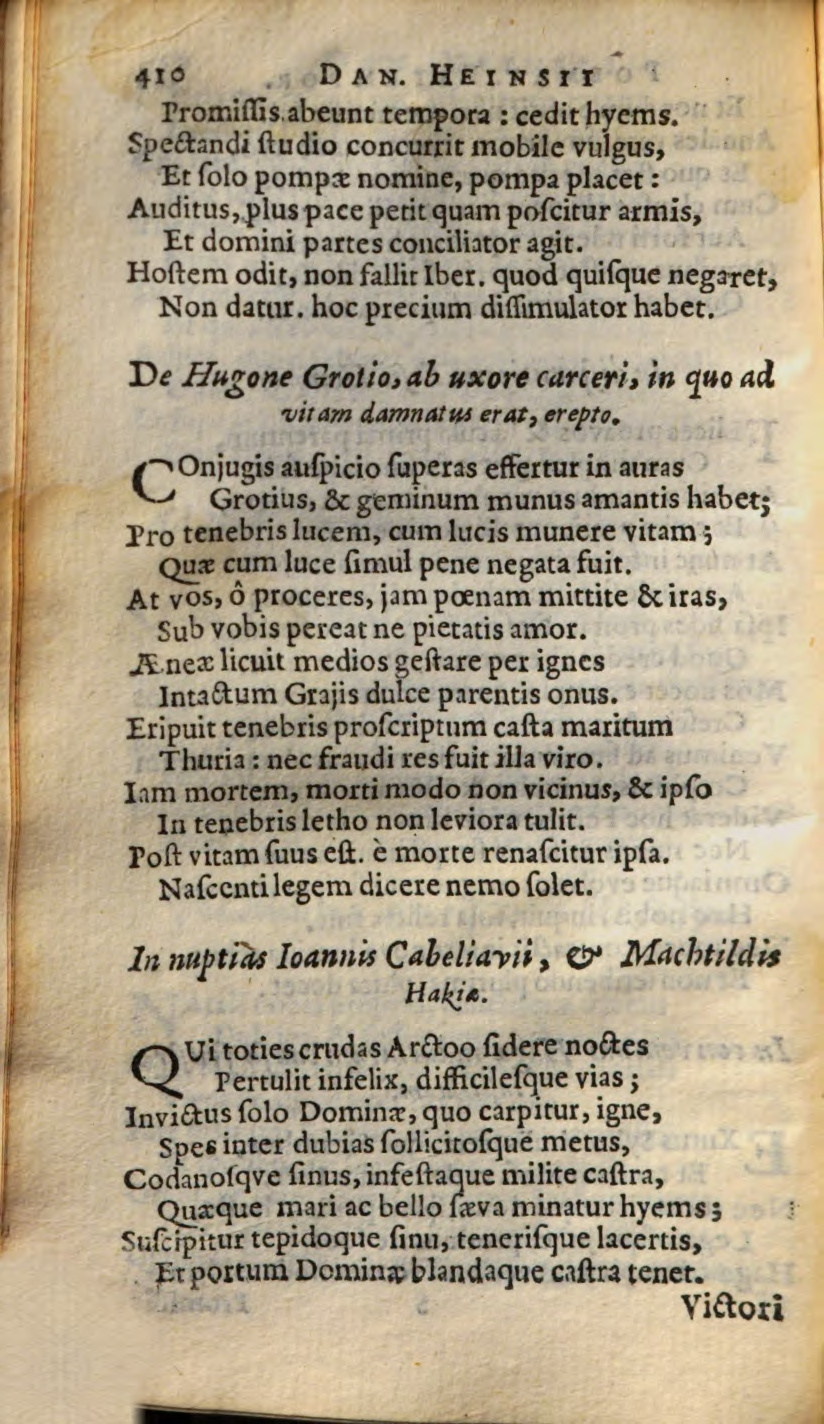 410 DAN. HEINSII
Promiſſis abeunt tempora : cedit hyems.
Spectandi ſtudio concurrit mobile vulgus,
Et ſolo pompæ nomine, pompa placet :
Auditus, plus pace petit quam poſcitur armis,
Et domini partes conciliator agit.
Hoſtem odit, non fallit Iber. quod quiſque negaret,
Non datur. hoc precium diſſimulator habet.
De Hugone Grotio, ab uxore carceri, in quo ad
vitam damnatus erat, erepto.
COnjugis auſpicio ſuperas effertur in auras
Grotius, & geminum munus amantis habet;
Pro tenebris lucem, cum lucis munere vitam ;
Quæ cum luce ſimul pene negata fuit.
At vos, ô proceres, jam pœnam mittite & iras,
Sub vobis pereat ne pietatis amor.
Æneæ licuit medios geſtare per ignes
Intactum Grajis dulce parentis onus.
Eripuit tenebris proſcriptum caſta maritum
Thuria : nec fraudi res fuit illa viro.
Iam mortem, morti modo non vicinus, & ipſo
In tenebris letho non leviora tulit.
Poſt vitam ſuus eſt. è morte renaſcitur ipſa.
Naſcenti legem dicere nemo ſolet.
In nuptias Ioannis Cabeliavii, & Machtildis
Hakiæ.
QUi toties crudas Arctoo ſidere noctes
Pertulit infelix, difficileſque vias ;
Invictus ſolo Dominæ, quo carpitur, igne,
Spes inter dubias ſollicitoſque metus,
Codanoſqve ſinus, infeſtaque milite caſtra,
Quæque mari ac bello ſæva minatur hyems ;
Suſcipitur tepidoque ſinu, teneriſque lacertis,
Et portum Dominæ blandaque caſtra tenet.
Victori